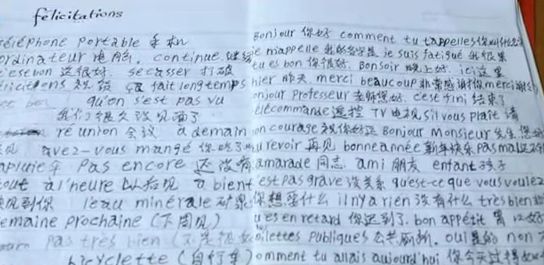 félicitations
téléphone portable 手机
ordinateur 电脑, continue 继续
c'est bon 这很好 se casser 打破
félicitations 祝贺 ça fait longtemps
qu'on s'est pas vu
我们很久没见面了
réunion 会议 à demain
avez-vous mangé 你吃了吗
pas encore 还没有
tout à l'heure 以后见 à bient
见到你 l'eau minérale 矿泉
semaine prochaine (下周见)
pas très bien (不是很好
bicyclette (自行车)
Bonjour 你好 comment tu t'appelles 你叫什么
je m'appelle 我的名字是 je suis fatigué 我很累
tu es bon 你很好. Bonsoir 晚上好. ici 这里
hier 昨天 merci beaucoup 非常感谢你 merci 谢谢
bonjour Professeur 老师您好. c'est fini 结束了
télécommande 遥控 TV 电视 s'il vous plaît 请
bon courage 祝你好运 Bonjour Monsieur 先生 您好
au revoir 再见 bonne année 新年快乐 pas mal
camarade 同志 ami 朋友 enfant 孩子
c'est pas grave 没关系 qu'est-ce que vous voulez
你想要什么 il n'y a rien 没有什么 très bien
tu es en retard 你迟到了. bon appétit 胃口好
toilettes publiques 公共厕所. oui 是的 non 不
comment tu allais aujourd'hui 你今天过得